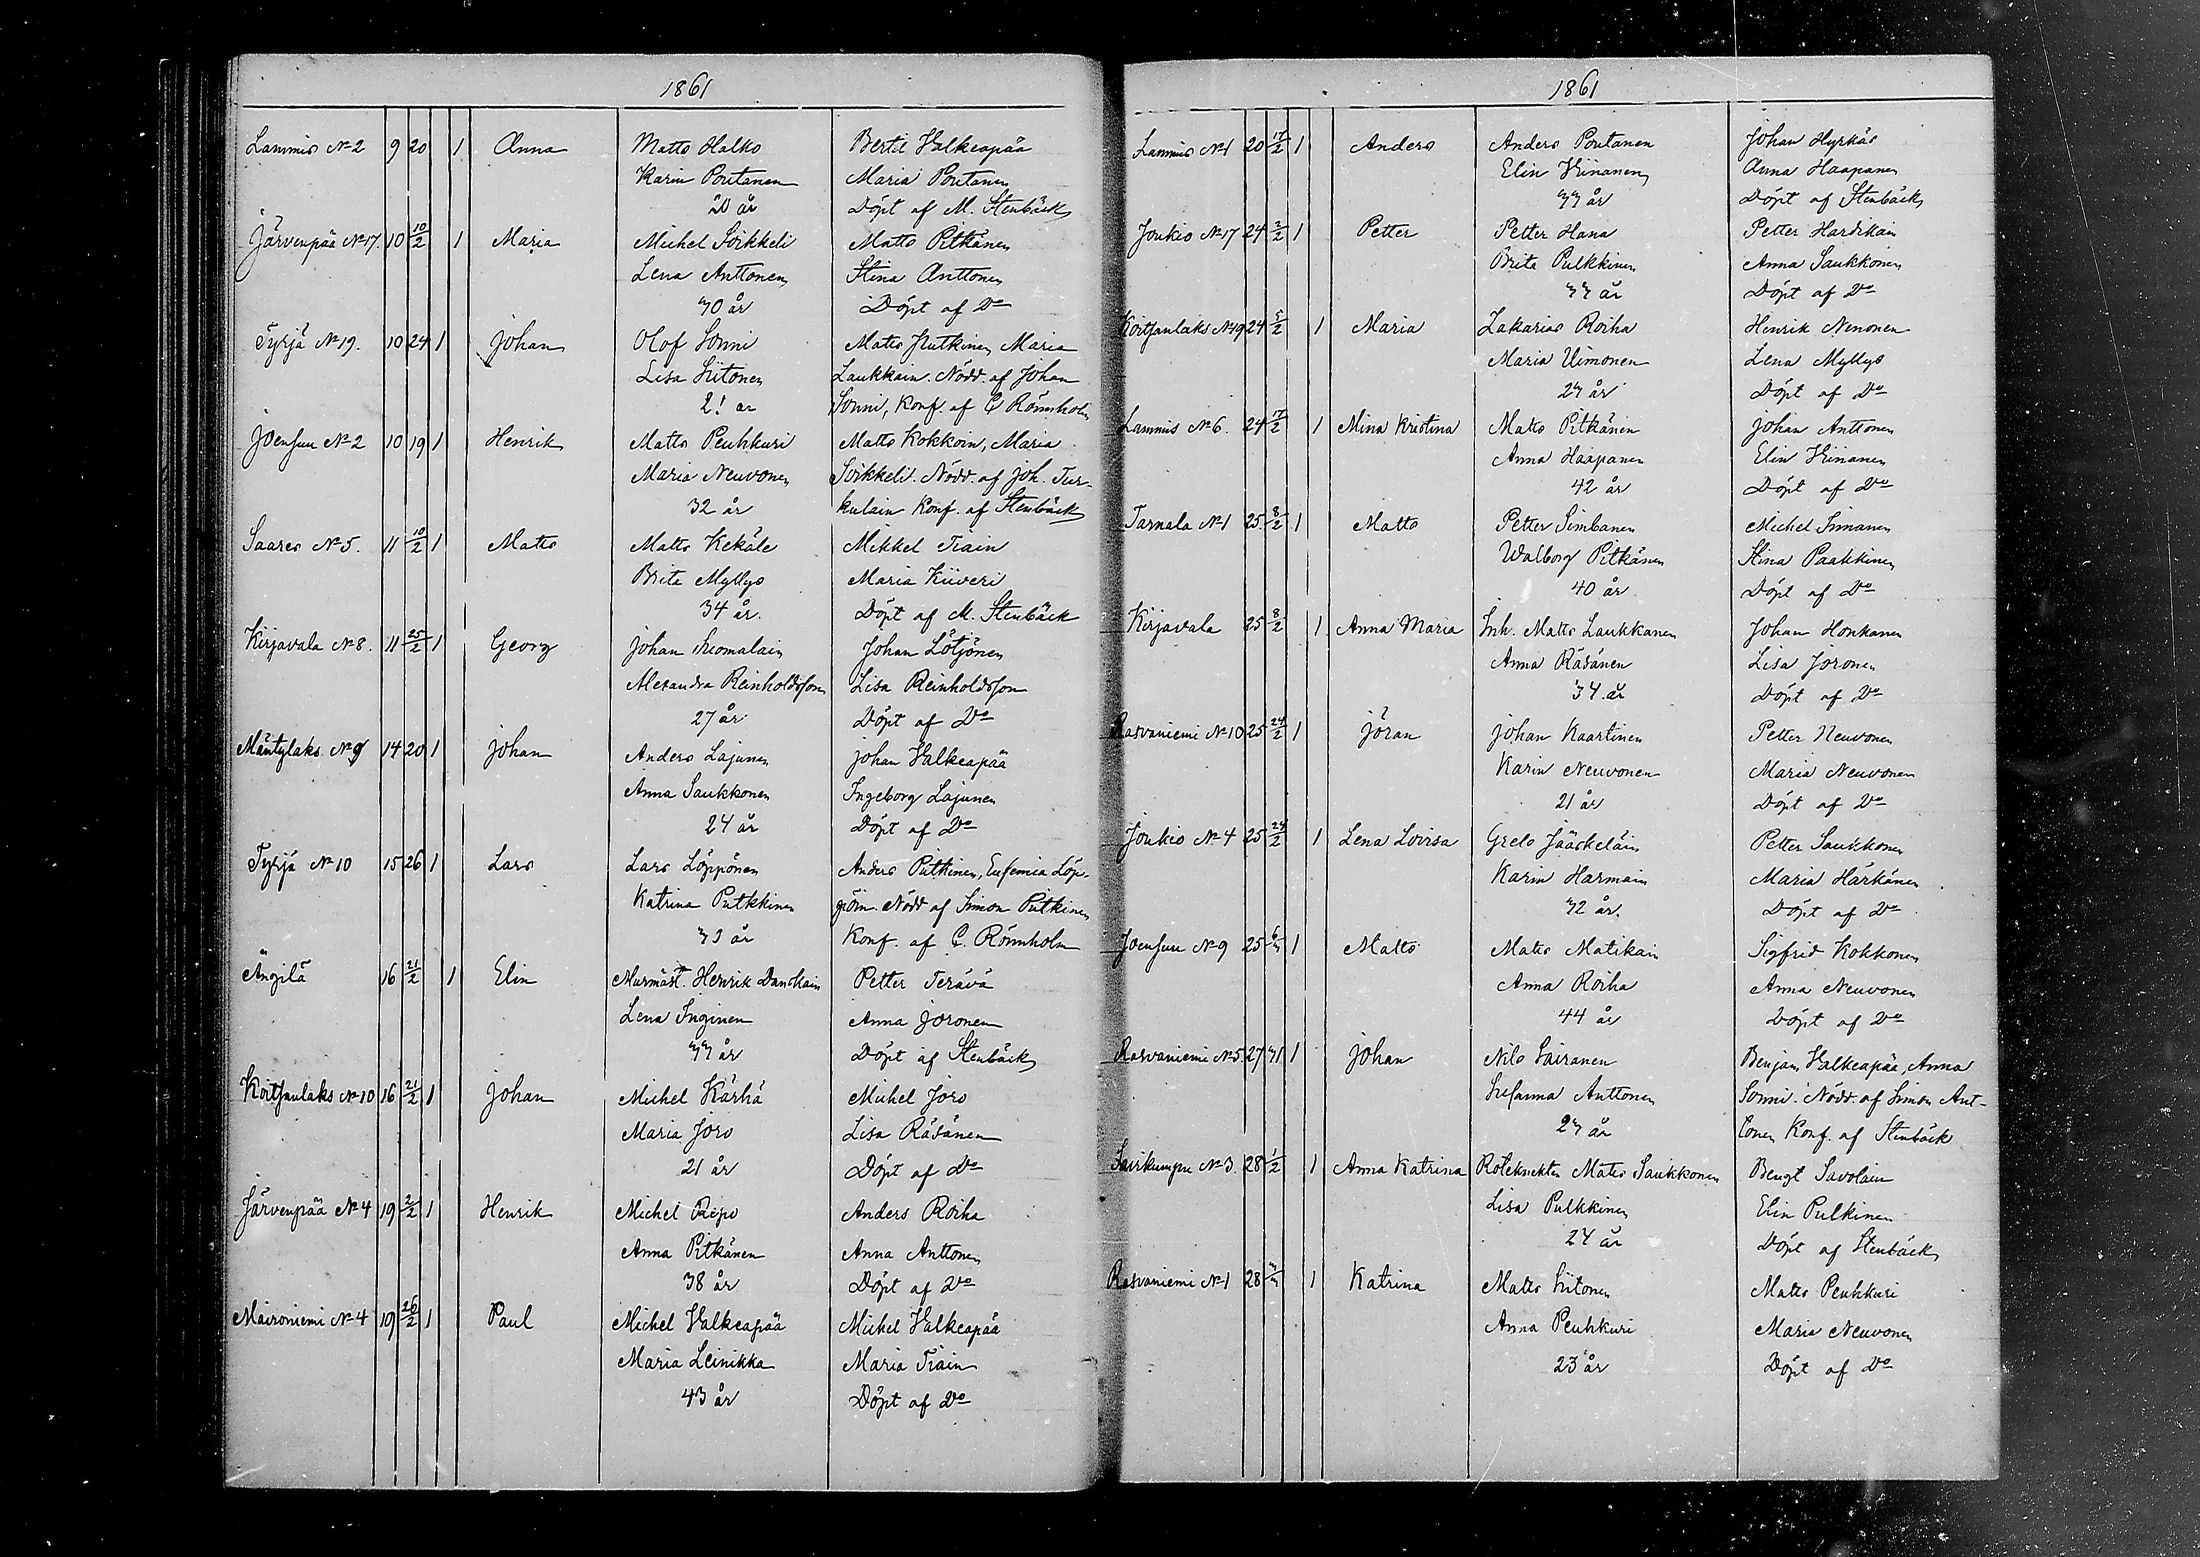 1861
Lammis № 2 9 20 1 Anna Matts Halko Bertil Valkeapää
Karin Poutanen Maria Poutanen
20 år Döpt af M. Stenbäck
Järvenpää № 17. 10 10/2 1 Maria Michel Soikkeli Matts Pitkänen
Lena Anttonen Stina Anttonen
30 år Döpt af Do
Tyrjä № 19. 10 24 1 Johan Olof Sonni Matts Hutkinen, Maria
Lisa Siitonen Laukkain. Nödd. af Johan
21 år Sonni, Konf. af C Rönnholm
Joensuu № 2 10 19 1 Henrik Matts Peuhkuri Matts Kokkoin, Maria
Maria Neuvonen Soikkeli. Nödd. af Joh. Tur-
32 år kulain Konf. af Stenbäck
Saares № 5. 11 10/2 1 Matts Matts Kekäle Mikkel Tiain
Brita Myllys Maria Kiiveri
34 år. Döpt af M. Stenbäck
Kirjavala № 8. 11 25/2 1 Georg Johan Suomalain Johan Lötjönen
Alexandra Reinholdsson Lisa Reinholdsson
27 år Döpt af Do
Mäntylaks. № 9 14 20 1 Johan Anders Lajunen Johan Valkeapää
Anna Saukkonen Ingeborg Lajunen
24 år Döpt af Do
Tyrjä № 10 15 26 1 Lars Lars Löppönen Anders Putkinen, Eufemia Löp-
Katrina Putkkinen pöin. Nödd af Simon Putkinen
33 år Konf. af C. Rönnholm
Ängilä 16 21/2 1 Elin Murmäst. Henrik Danskain Petter Terävä
Lena Inginen Anna Joronen
33 år Döpt af Stenbäck
Koitsanlaks № 10 16 21/2 1 Johan Michel Kärhä Michel Joro
Maria Joro Lisa Räsänen
21 år Döpt af Do
Järvenpää № 4 19 2/2 1 Henrik Michel Repo Anders Roiha
Anna Pitkänen Anna Anttonen
38 år Döpt af Do
Mäironiemi № 4 19 26/2 1 Paul Michel Valkeapää Michel Valkeapää
Maria Leinikka Maria Tiain
43 år Döpt af Do
1861
Lammis № 1 20 17/2 1 Anders Anders Poutanen Johan Hyrkäs
Elin Kiinanen Anna Haapanen
33 år Döpt af Stenbäck
Joukio № 17 24 2/2 1 Petter Petter Hana Petter Hardikain
Brita Pulkkinen Anna Saukkonen
33 år Döpt af Do
Koitsanlaks № 19 24 5/2 1 Maria Zakarias Roiha Henrik Nenonen
Maria Uimonen Lena Myllys
23 år Döpt af Do
Lammis № 6. 24 17/2 1 Mina Kristina Matts Pitkänen Johan Anttonen
Anna Haapanen Elin Kiinanen
42 år Döpt af Do
Tarnala № 1 25. 8/2 1 Matts Petter Simbanen Michel Innanen
Walborg Pitkänen Stina Paakkinen
40 år Döpt af Do
Kirjavala 25 8/2 1 Anna Maria Inh. Matts Laukkanen Johan Honkanen
Anna Räsänen Lisa Joronen
34 år Döpt af Do
Rasvaniemi № 10 25 24/2 1 Jöran Johan Kaartinen Petter Neuvonen
Karin Neuvonen Maria Neuvonen
21 år Döpt af Do
Joukio № 4 25 24/2 1 Lena Lovisa Grels Jääskeläin Petter Saukkonen
Karin Harmain Maria Härkänen
32 år. Döpt af Do
Joensuu № 9 25 6/3 1 Matts Matts Matikain Sigfrid Kokkonen
Anna Roiha Anna Neuvonen
44 år Döpt af Do
Rasvaniemi № 5. 27 31 1 Johan Nils Sairanen Benjam. Valkeapää, Anna
Susanna Anttonen Sonni. Nödd. af Simon Ant-
23 år tonen Konf. af Stenbäck
Sairkumpu № 3. 28 1/2 1 Anna Katrina Roteknekten Matts Saukkonen Bengt Savolain
Lisa Pulkkinen Elin Pulkinen
24 år Döpt af Stenbäck
Rasvaniemi № 1 28 3/3 1 Katrina Matts Siitonen Matts Peuhkuri
Anna Peuhkuri Maria Neuvonen
23 år Döpt af Do